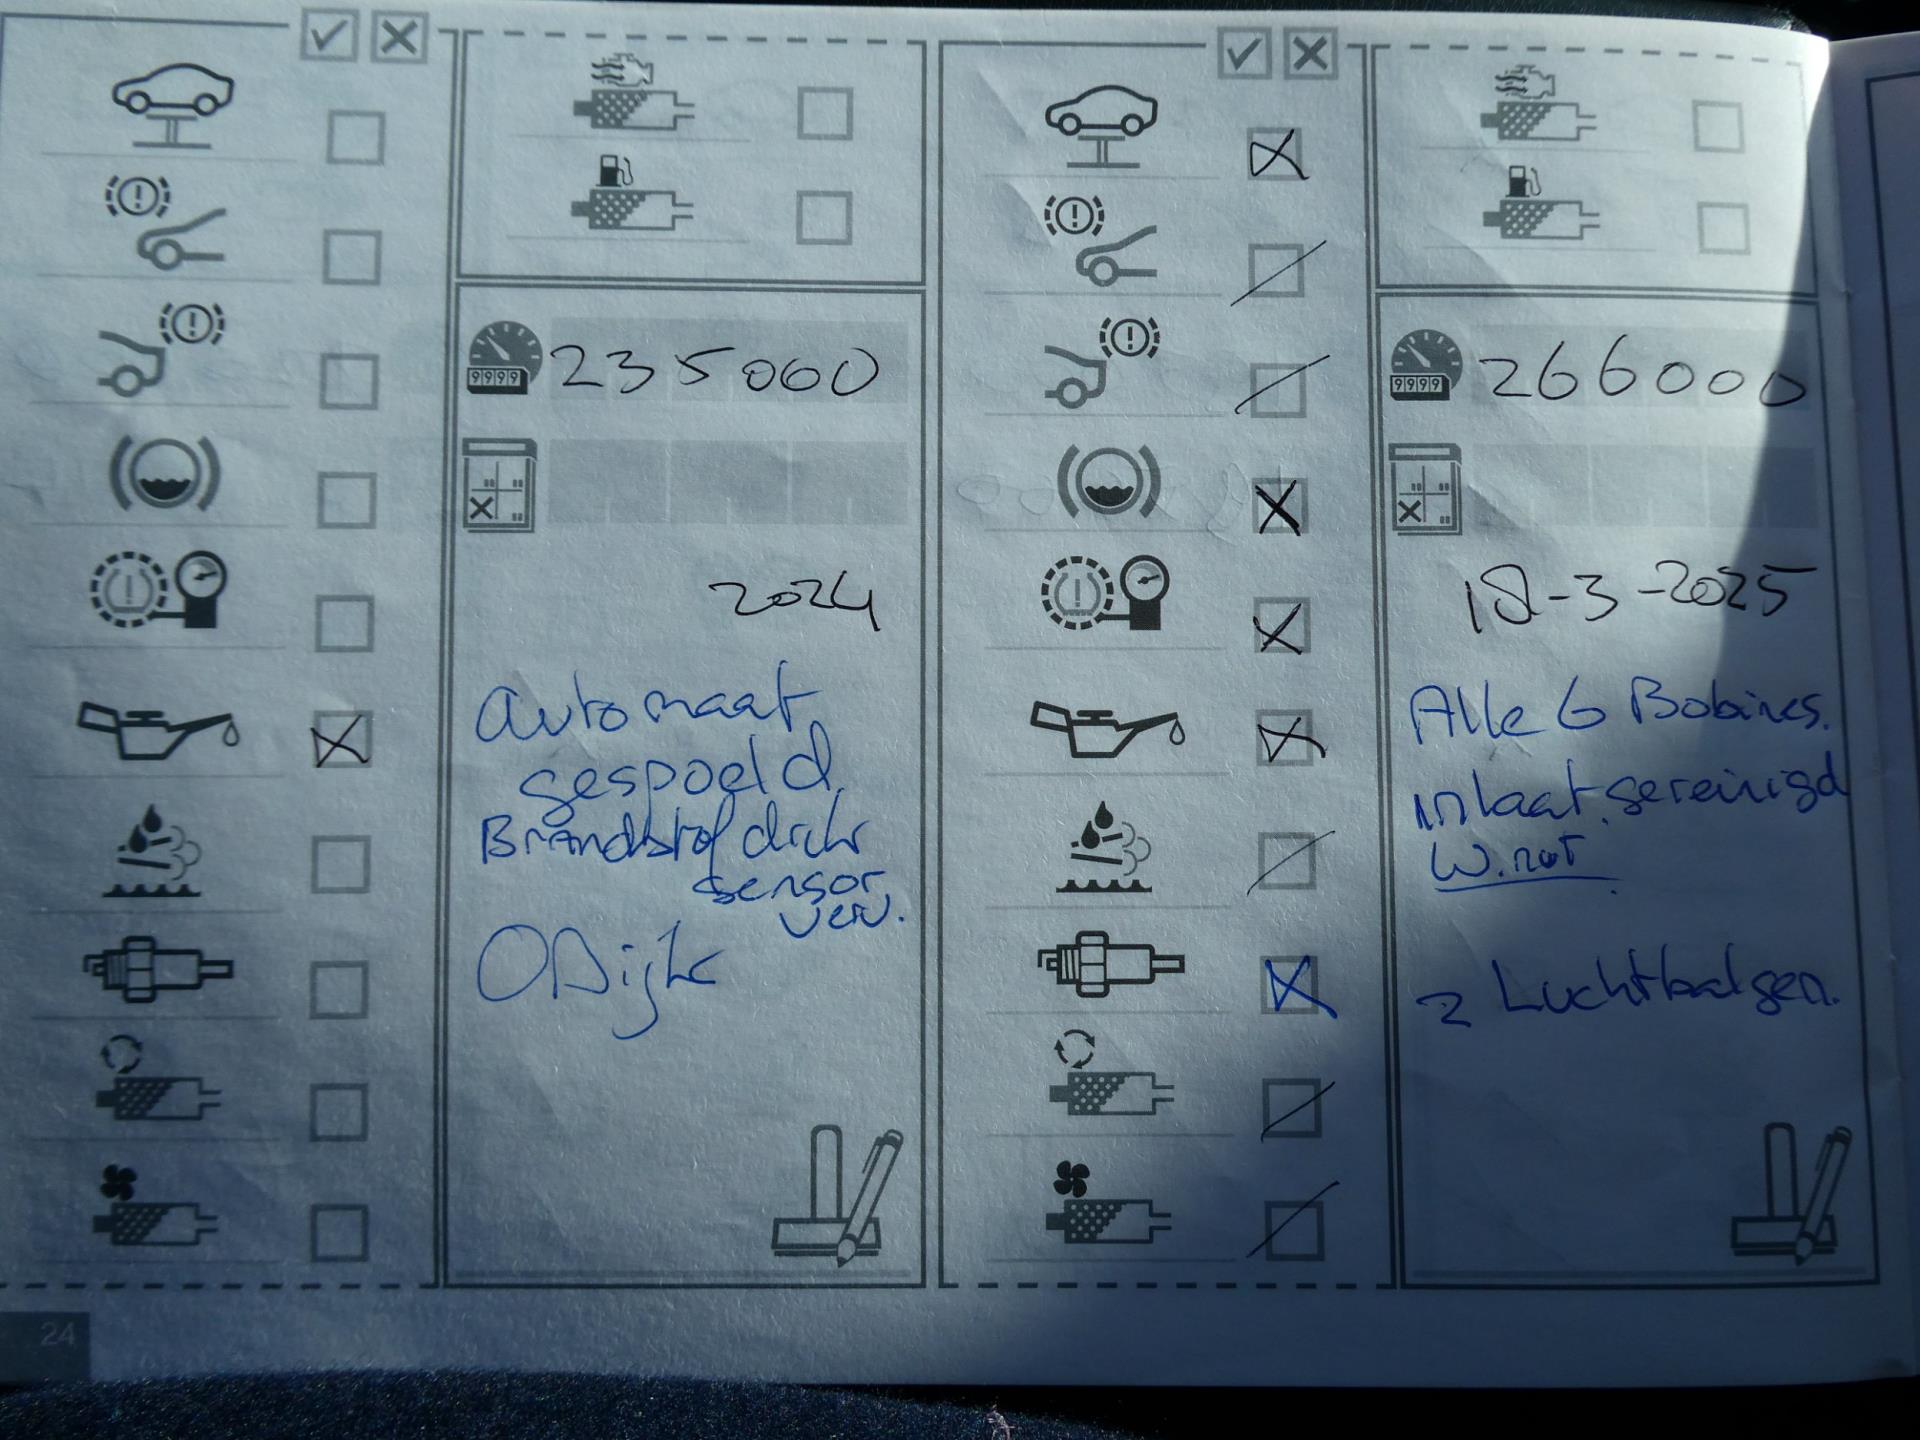 235000
9999
2024
Automaat
gespoeld
Brandstof druk
sensor
verv.
24
266000
9999
18-3-2025
Alle 6 Bobines.
inlaat gereinigd
2 Luchtbalgen.